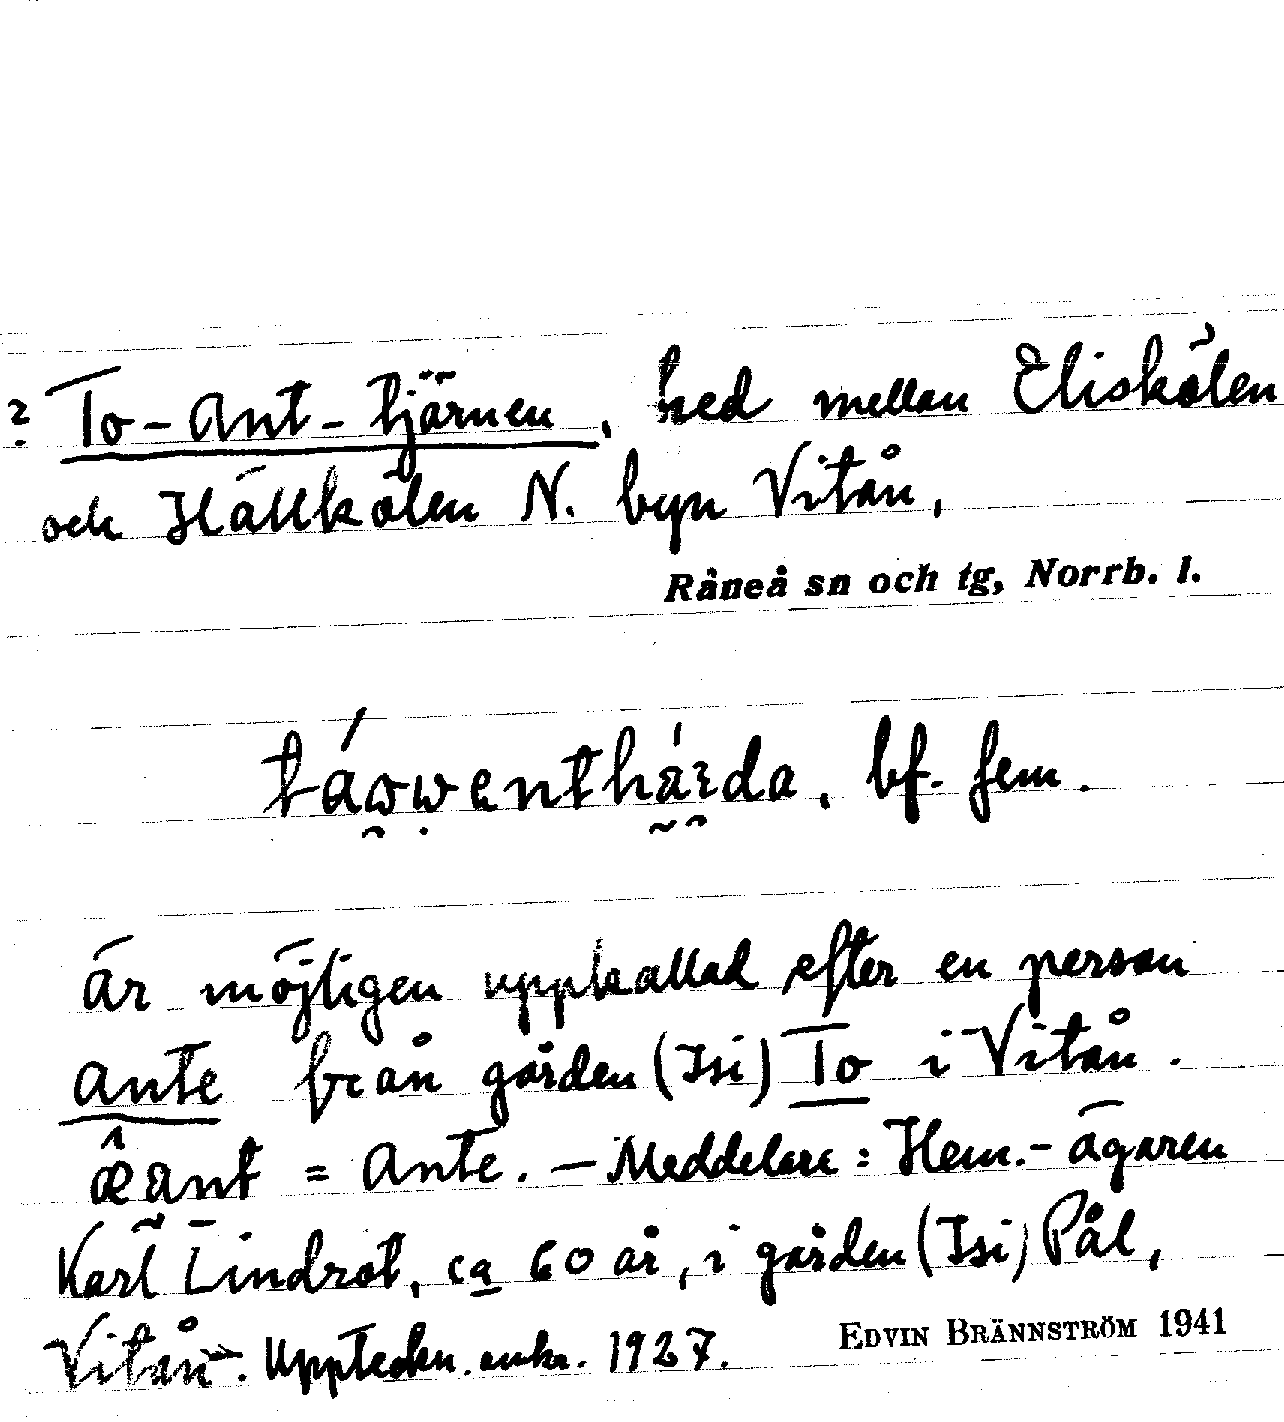 ? To-Ant-tjärnen, hed mellan Eliskölen
och Hällkölen N. byn Vitån,
Råneå sn och tg, Norrb. l.
bf. fem.
är möjligen uppkallad efter en person
Ante från gården (Isi) To i Vitån.
= Ante. — Meddelare: Hem.-ägaren
Karl Lindrot, ca 60 år, i gården (Isi) Pål,
Vitån. Uppteckn. omkr. 1927.
EDVIN BRÄNNSTRÖM 1941